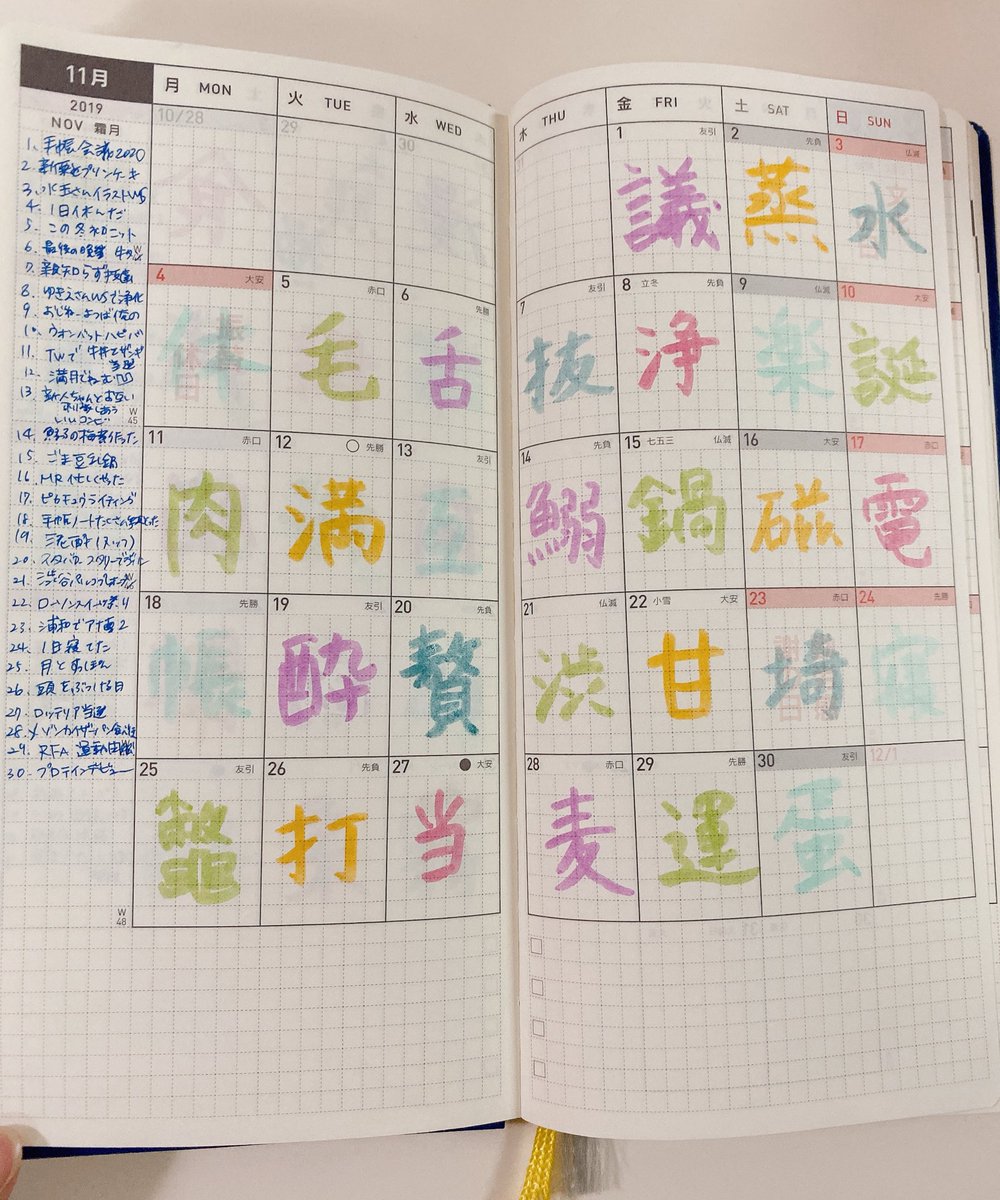 11月
2019
NOV 霜月
1. 手帳会議2020
2. 新栗蒸プリンケーキ
3. 水玉さんイラストWS
4. 1日休んだ
5. この冬初ニット
6. 最後の晩餐 牛タン
7. 親知らず抜歯
8. ゆきえさんWSで浄化
10. ウォンバットハピバ
11. TWで牛丼とザンギ
当選
12. 満月でねむい
13. 新人ちゃんとお互い
いいコンビ
15. ごま豆乳鍋
16. MR忙しくやった
17. ピカチュウライティング
18. 手帳ノートたくさん
19. 泥酔(スッフ)
20. スタバロースタリー
21. 渋谷パルコプレオープン
22. ローソンスイーツ祭り
23. 浦和でアナ雪2
24. 1日寝てた
25. 月とすっぽん
26. 頭をぶつける日
27. ロッテリア当選
28. メゾンカイザーパン食べ放
29. RFA 運動
30. プロテインデビュー
W45
W48
月 MON
火 TUE
水 WED
木 THU
金 FRI
土 SAT
日 SUN
10/28
29
30
31
1 友引
議
2 先負
蒸
3 仏滅
水
4 大安
休
5 赤口
毛
6 先勝
舌
7 友引
抜
8 立冬 先負
浄
9 仏滅
楽
10 大安
誕
11 赤口
肉
12 先勝
満
13 友引
豆
14 先負
鰯
15 七五三 仏滅
鍋
16 大安
磁
17 赤口
電
18 先勝
帳
19 友引
酔
20 先負
贅
21 仏滅
渋
22 小雪 大安
甘
23 赤口
埼
24 先勝
寝
25 友引
鼈
26 先負
打
27 大安
当
28 赤口
麦
29 先勝
運
30 友引
蛋
12/1